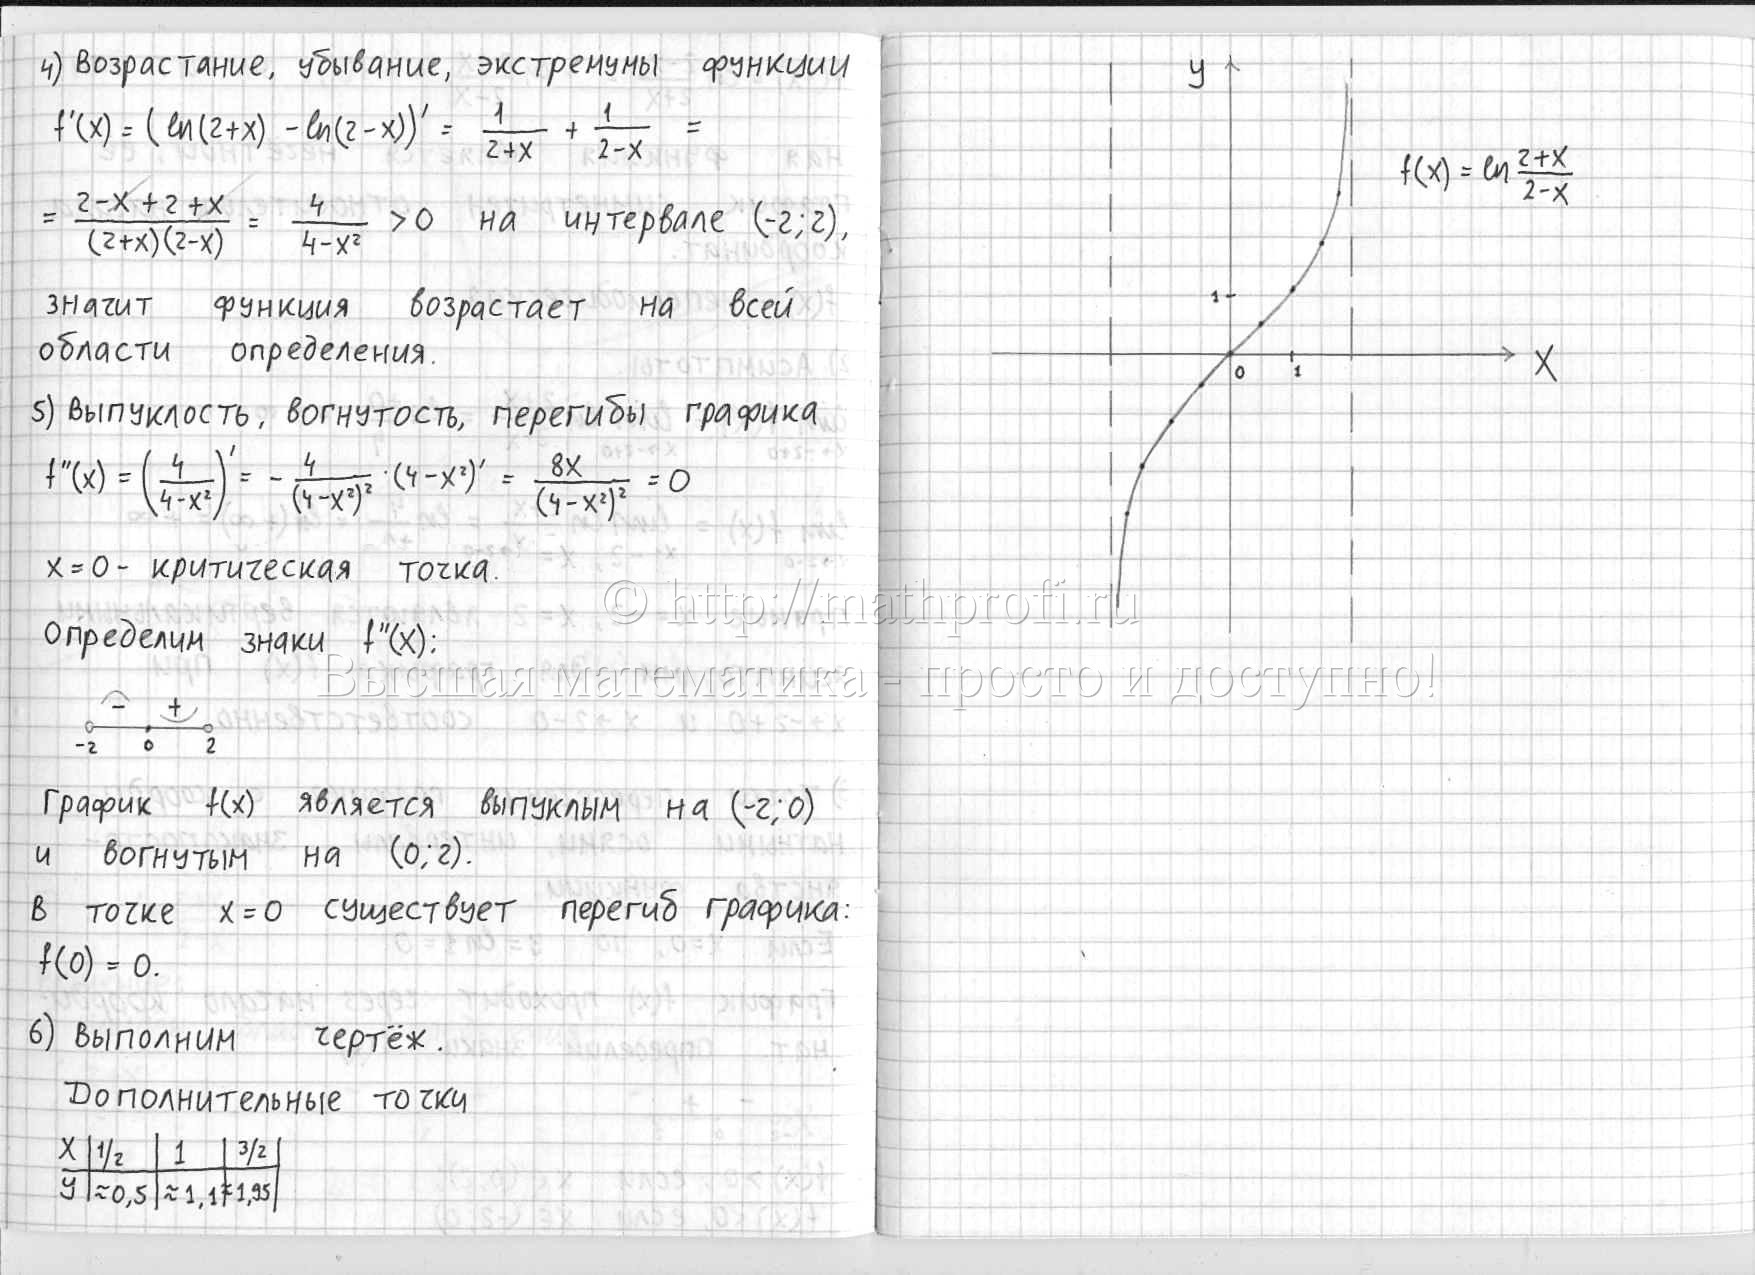 4) Возрастание, убывание, экстремумы функции
f'(x) = (ln(2+x) - ln(2-x))' = 1/(2+x) + 1/(2-x) =
= (2-x+2+x)/((2+x)(2-x)) = 4/(4-x²) > 0 на интервале (-2;2),
значит функция возрастает на всей
области определения.
5) Выпуклость, вогнутость, перегибы графика
f''(x) = (4/(4-x²))' = - 4/(4-x²)² · (4-x²)' = 8x/(4-x²)² = 0
x=0 - критическая точка.
Определим знаки f''(x):
- +
-2 0 2
График f(x) является выпуклым на (-2;0)
и вогнутым на (0;2).
В точке x=0 существует перегиб графика:
f(0) = 0.
6) Выполним чертёж.
Дополнительные точки
x | 1/2 | 1 | 3/2
y | ≈0,5 | ≈1,1 | ≈1,95
y
f(x) = ln (2+x)/(2-x)
1
0 1 X
© http://mathprofi.ru
Высшая математика - просто и доступно!